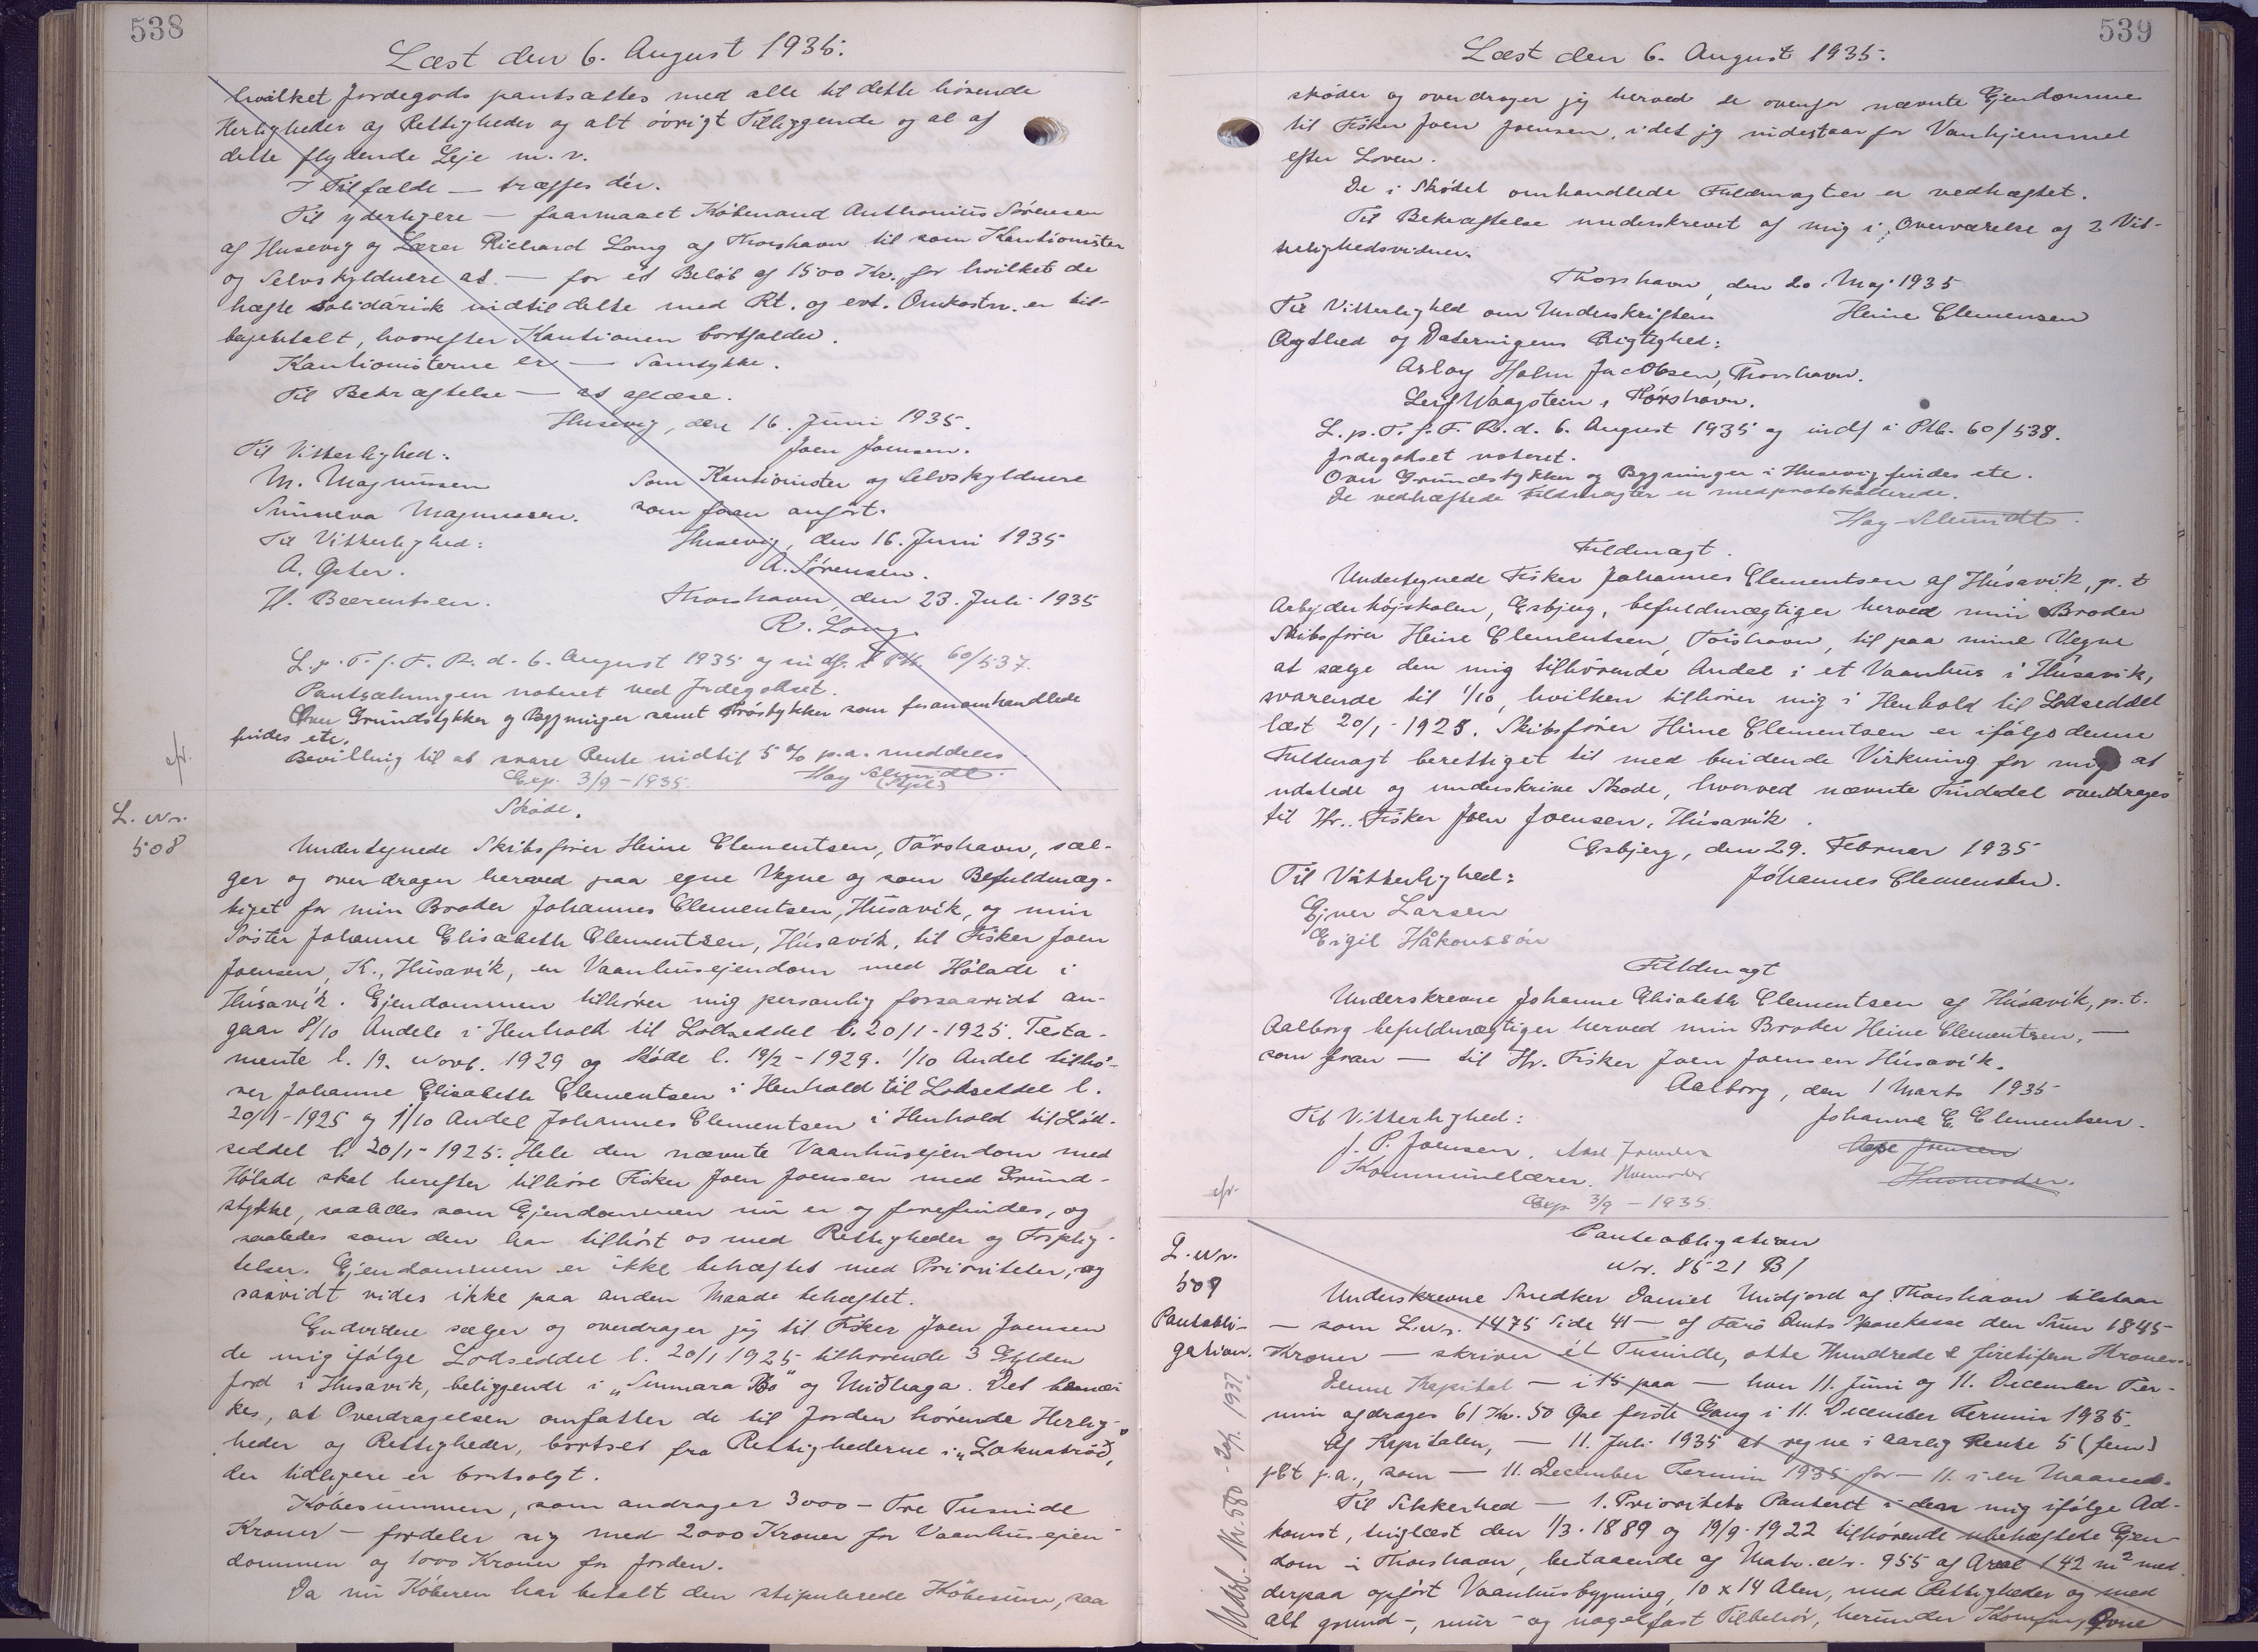 538
Læst den 6. August 1935.
hvilket Jordegods pantsættes med alle til dette hørende
Herligheder og Rettigheder og alt øvrigt Tilliggende og al af
dette flydende Leje m.v.
I Tilfælde — træffes dér.
Til yderligere — formaaet Købmand Anthonius Sørensen
af Husevig og Lærer Richard Long af Thorshavn til som Kautionister
og Selvskyldnere at — for et Beløb af 1500 Kr., for hvilket de
hæfte solidarisk indtil dette med Rt. og evt. Omkostn. er til-
bagebetalt, hvorefter Kautionen bortfalder.
Kautionisterne er — Samtykke.
Til Bekræftelse — at aflæse.
Husevig, den 16. Juni 1935.
Til Vitterlighed: Joen Joensen.
M. Magnussen Som Kautionister og Selvskyldnere
Sunneva Magnussen. som foran anført.
Til Vitterlighed: Husevig, den 16. Juni 1935
A. Øster. A. Sørensen.
H. Beerentsen. Thorshavn, den 23. Juli 1935
R. Long.
L. p. T. f. F. R. d. 6. August 1935 og indf. i Ptb. 60/537.
Pantsætningen noteret ved Jordegodset.
Over Grundstykker og Bygninger samt Trøstykker som foranomhandlede
findes etc.
Bevilling til at svare Rente indtil 5 % p.a. meddeles
Exp. 3/9-1935. Hay Schmidt.
(Stpl)
cfr.
L. Nr.
508
Skøde.
Undertegnede Skibsfører Heine Clementsen, Tórshavn, sæl-
ger og overdrager herved paa egne Vegne og som Befuldmæg-
tiget for min Broder Johannes Clementsen, Húsavík, og min
Søster Johanne Elisabeth Clementsen, Húsavík, til Fisker Joen
Joensen, K., Húsavík, en Vaanhusejendom med Hølade i
Húsavík. Ejendommen tilhører mig personlig forsaavidt an-
gaar 8/10 Andele i Henhold til Lodseddel l. 20/1-1925. Testa-
mente l. 19. Novb. 1929 og Skøde l. 19/2-1929. 1/10 Andel tilhø-
rer Johanne Elisabeth Clementsen i Henhold til Lodseddel l.
20/1-1925 og 1/10 Andel Johannes Clementsen i Henhold til Lod-
seddel l. 20/1-1925. Hele den nævnte Vaanhusejendom med
Hølade skal herefter tilhøre Fisker Joen Joensen med Grund-
stykke, saaledes som Ejendommen nu er og forefindes, og
saaledes som den har tilhørt os med Rettigheder og Forplig-
telser. Ejendommen er ikke behæftet med Prioriteter, og
saavidt vides ikke paa anden Maade behæftet.
Endvidere sælger og overdrager jeg til Fisker Joen Joensen
de mig ifølge Lodseddel l. 20/1 1925 tilhørende 3 Gylden
Jord i Husavik, beliggende i „Sunnara Bø" og Uniðhaga. Det bemær-
kes, at Overdragelsen omfatter de til Jorden hørende Herlig-
heder og Rettigheder, bortset fra Rettighederne i „Loknatrøð",
der tidligere er bortsolgt.
Købesummen, som andrager 3000 – Tre Tusinde
Kroner – fordeler sig med 2000 Kroner for Vaanhusejen-
dommen og 1000 Kroner for Jorden.
Da nu Køberen har betalt den stipulerede Købesum, saa
539
Læst den 6. August 1935.
skøder og overdrager jeg herved de ovenfor nævnte Ejendomme
til Fisker Joen Joensen, idet jeg indestaar for Vanhjemmel
efter Loven.
De i Skødet omhandlede Fuldmagter er vedhæftet.
Til Bekræftelse underskrevet af mig i Overværelse af 2 Vit-
terlighedsvidner.
Thorshavn, den 20. Maj 1935
Til Vitterlighed om Underskriftens Heine Clemensen
Ægthed og Dateringens Rigtighed:
Asloy Holm Jacobsen, Thorshavn.
Leif Waagstein, Tórshavn.
L. p. T. f. F. R. d. 6. August 1935 og indf i Ptb. 60/538.
Jordegodset noteret.
Over Grundstykker og Bygninger i Husevig findes etc.
De vedhæftede Fuldmagter er medprotokollerede.
Hay Schmidt.
Fuldmagt.
Undertegnede Fisker Johannes Clementsen af Húsavík, p.t.
Arbejderhøjskolen, Esbjerg, befuldmægtiger herved min Broder
Skibsfører Heine Clementsen, Torshavn, til paa mine Vegne
at sælge den mig tilhørende Andel i et Vaanhus i Húsavík,
svarende til 1/10, hvilken tilhører mig i Henhold til Lodseddel
læst 20/1-1925. Skibsfører Heine Clementsen er ifølge denne
Fuldmagt berettiget til med bindende Virkning for mig at
udstede og underskrive Skøde, hvorved nævnte Tiendedel overdrages
til Hr. Fisker Joen Joensen, Húsavík.
Esbjerg, den 29. Februar 1935
Til Vitterlighed: Jóhannes Clemensen.
Ejner Larsen
Eigil Håkonssón
Fuldmagt
Underskrevne Johanne Elisabeth Clementsen af Húsavík, p.t.
Aalborg befuldmægtiger herved min Broder Heine Clementsen, —
som foran — til Hr. Fisker Joen Joensen Húsavík.
Aalborg, den 1 Marts 1935
Til Vitterlighed: Johanne E. Clementsen.
J. P. Joensen.
Kommunelærer. Husmoder Husmoder.
Exp. 3/9-1935.
cfr.
L. Nr.
509
Pantobli-
gation.
Panteobligation
Nr. 8521 B/
Underskrevne Snedker Daniel Midjord af Thorshavn tilstaar
— som L. Nr. 1475 Side 41 — af Færø Amts Sparekasse den Sum 1845
Kroner — skriver ét Tusinde, otte Hundrede & firetifem Kroner.
Denne Kapital — i 15 paa — hver 11. Juni og 11. December Ter-
min afdrages 61 Kr. 50 Øre første Gang i 11. December Termin 1935.
Af Kapitalen, — 11. Juli 1935 at regne i aarlig Rente 5 (fem)
pCt p.a., som — 11. December Termin 1935 for — 11. i en Maaned.
Til Sikkerhed — 1. Prioritets Panteret i den mig ifølge Ad-
komst, tinglæst den 1/3-1889 og 19/9-1922 tilhørende ubehæftede Ejen-
dom i Thorshavn, bestaaende af Matr. Nr. 955 af Areal 142 m² med
derpaa opført Vaanhusbygning, 10 x 14 Alen, med Rettigheder og med
alt grund-, mur- og nagelfast Tilbehør, herunder Komfur, Ovne